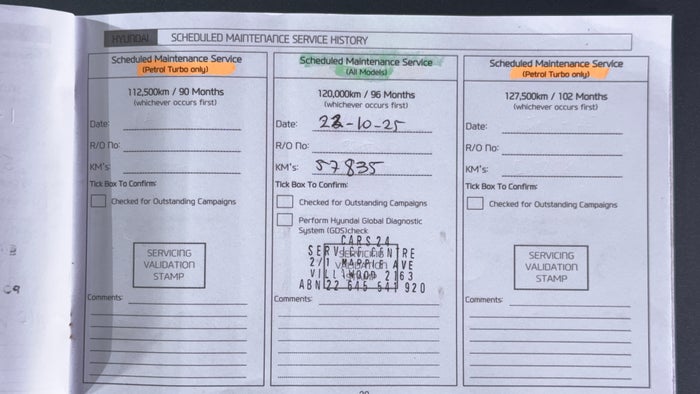 HYUNDAI SCHEDULED MAINTENANCE SERVICE HISTORY
Scheduled Maintenance Service
(Petrol Turbo only)
112,500km / 90 Months
(whichever occurs first)
Date:
R/O No:
KM's:
Tick Box To Confirm:
Checked for Outstanding Campaigns
SERVICING
VALIDATION
STAMP
Comments:
Scheduled Maintenance Service
(All Models)
120,000km / 96 Months
(whichever occurs first)
Date: 22-10-25
R/O No:
KM's: 57835
Tick Box To Confirm:
Checked for Outstanding Campaigns
Perform Hyundai Global Diagnostic
System (GDS)check
CARS 24
SERVICE CENTRE
2/1 MARPLE AVE
VILLAWOOD 2163
ABN 22 645 541 920
Comments:
Scheduled Maintenance Service
(Petrol Turbo only)
127,500km / 102 Months
(whichever occurs first)
Date:
R/O No:
KM's:
Tick Box To Confirm:
Checked for Outstanding Campaigns
SERVICING
VALIDATION
STAMP
Comments: